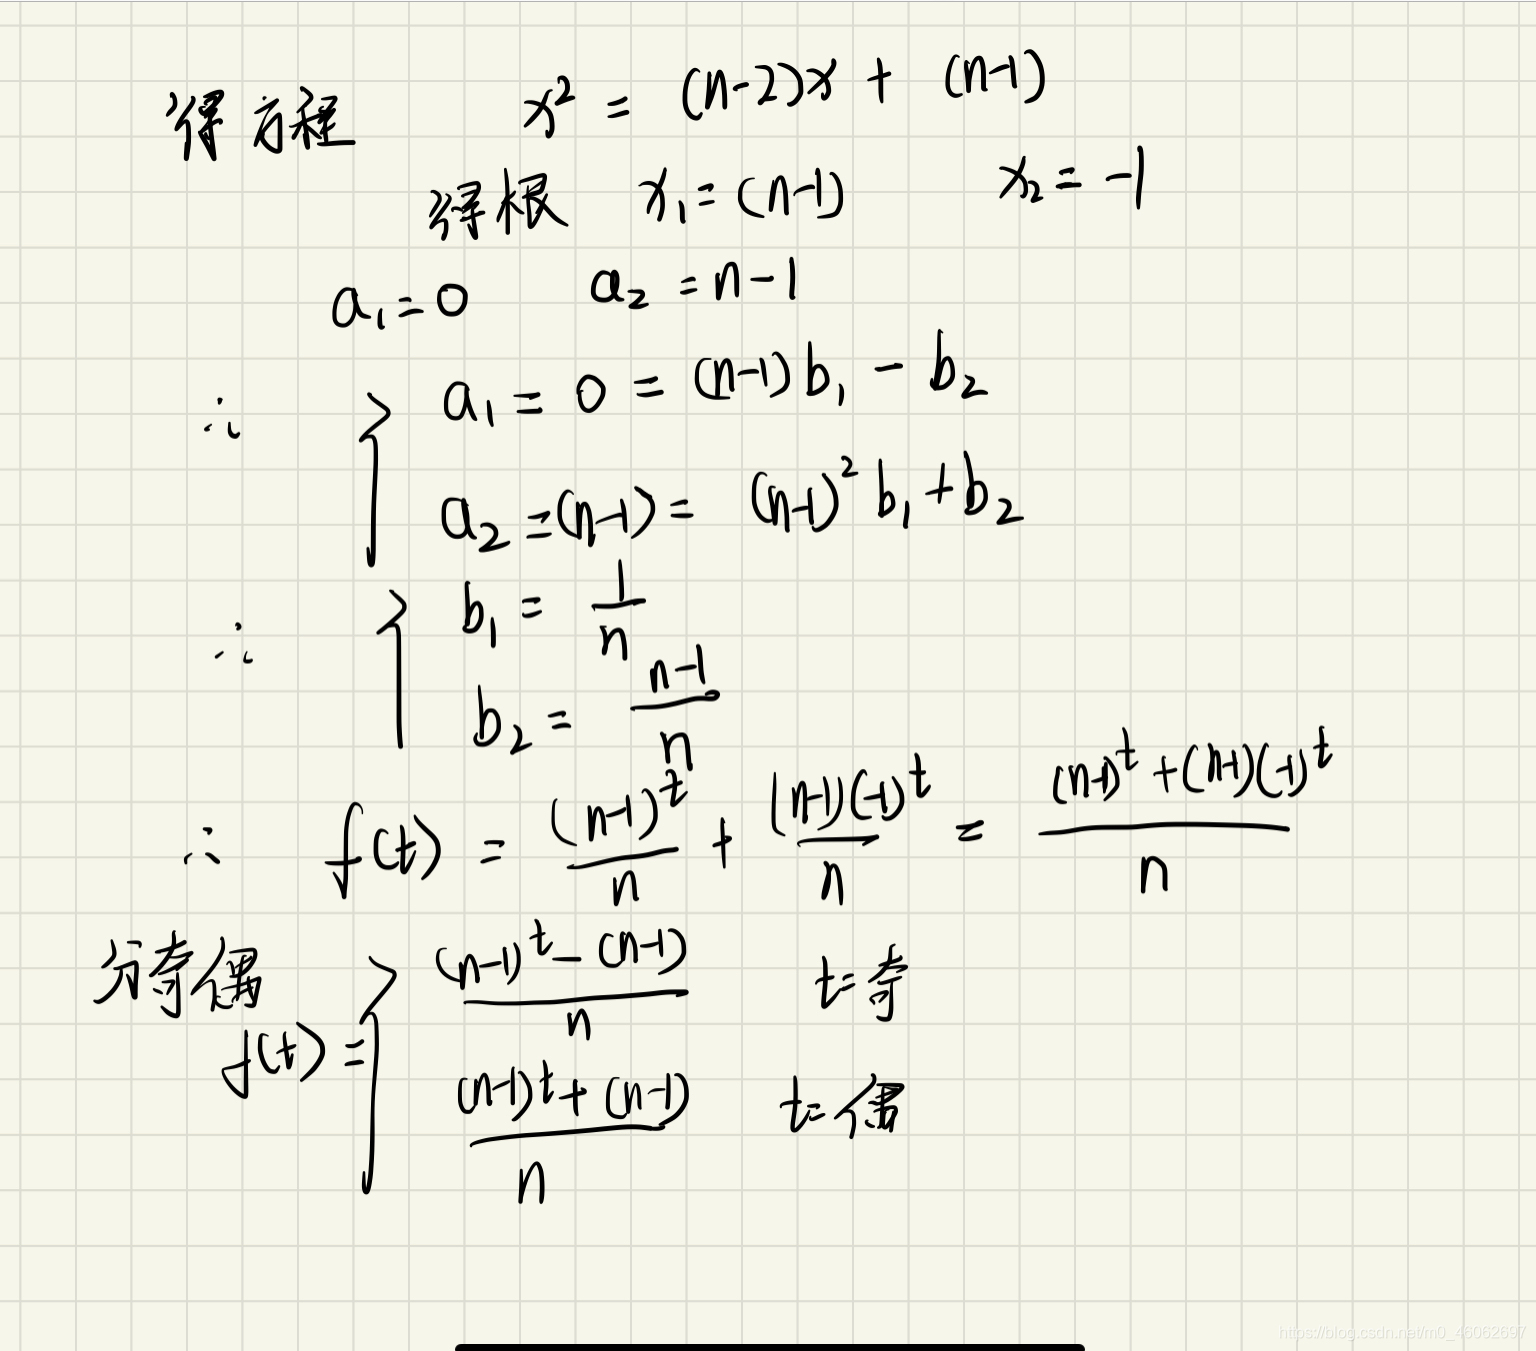 得方程 x² = (n-2)x + (n-1)
得根 x₁ = (n-1) x₂ = -1
a₁ = 0 a₂ = n-1
∴ { a₁ = 0 = (n-1)b₁ - b₂
a₂ = (n-1) = (n-1)²b₁ + b₂
∴ { b₁ = 1/n
b₂ = (n-1)/n
∴ f(t) = (n-1)^t/n + (n-1)(-1)^t/n = ((n-1)^t + (n-1)(-1)^t)/n
分奇偶
f(t) = { ((n-1)^t - (n-1))/n t=奇
((n-1)^t + (n-1))/n t=偶
https://blog.csdn.net/m0_46062697